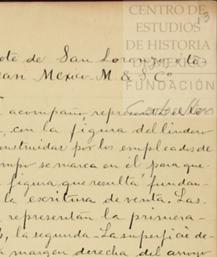 CENTRO DE
ESTUDIOS
DE HISTORIA
FUNDACIÓN
ote de San Lorenzo á la
ean Mexico M & S. Co
acompaño, representa
, con la figura del lindero
onstruidas por los empleados de
mpo se marca en él para que
figura que resulta fundan-
la escritura de venta. Las
representan la primera-
, la segunda. La superficie de
margen derecha del arroyo